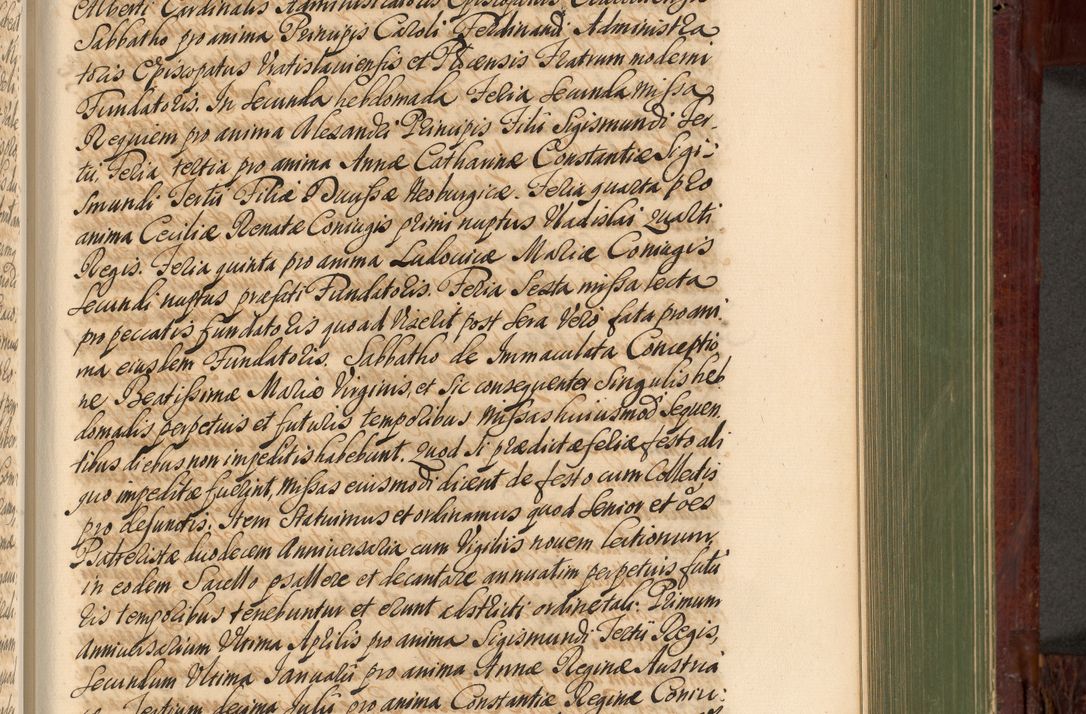 Alberti Cardinalis Administratoris Episcopatus Cracoviensis
Sabbatho pro anima Principis Caroli Ferdinandi Administra
toris Episcopatus Vratislaviensis et Plocensis Fratrum moderni
Fundatoris. In secunda hebdomada Feria secunda missa
Requiem pro anima Alexandri Principis Filii Sigismundi Ter-
tii, Feria tertia pro anima Annæ Catharinæ Constantiæ Sigi-
smundi Tertii Filiæ Ducissæ Neoburgicæ. Feria quarta pro
anima Ceciliæ Renatæ Coniugis primi nuptus Vladislai Quarti
Regis. Feria quinta pro anima Ludovicæ Mariæ Coniugis
secundi nuptus præfati Fundatoris. Feria Sexta missa lecta
pro peccatis fundatoris quoad vixerit post sera vero fata pro ani,
ma eiusdem Fundatoris. Sabbatho de Immaculata Conceptio
ne Beatissimæ Mariæ Virginis, et sic consequenter singulis heb
domadis perpetuis et futuris temporibus missas huiusmodi sequen,
tibus diebus non impeditis habebunt. Quod si prædictæ feriæ festo ali
quo impeditæ fuerint, missas eiusmodi dicent de festo cum Collectis
pro defunctis. Item Statuimus et ordinamus quod Senior et oes
Psalteristæ duodecem Anniversaria cum Vigiliis novem lectionum,
in eodem Sacello psallere et decantare annuatim perpetuis futu
ris temporibus tenebuntur et erunt abstricti ordine tali. Primum
Anniversarium Ultima Aprilis pro anima Sigismundi Tertii Regis,
secundum Ultima Januarii pro anima Annæ Reginæ Austria
Tertium decima Julii pro anima Constantiæ Reginæ Coniu: